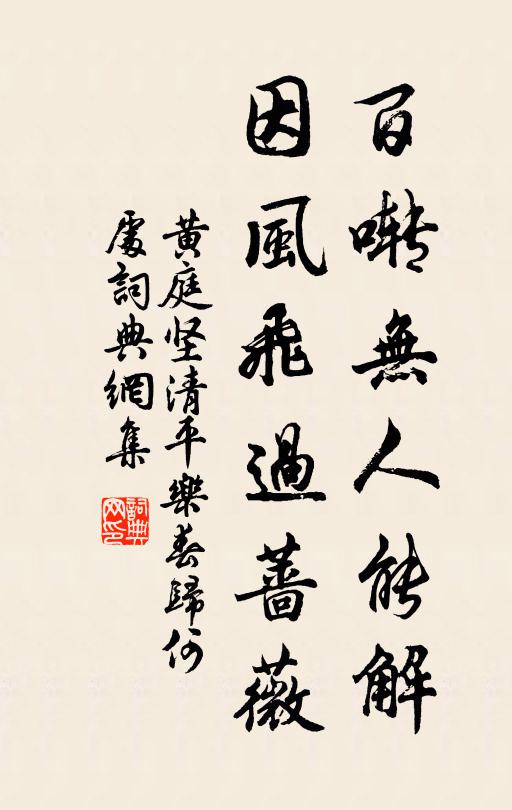 百啭無人能解
因風飛過薔薇
黄庭坚清平樂春歸何
處詞典網集
詞典
网印